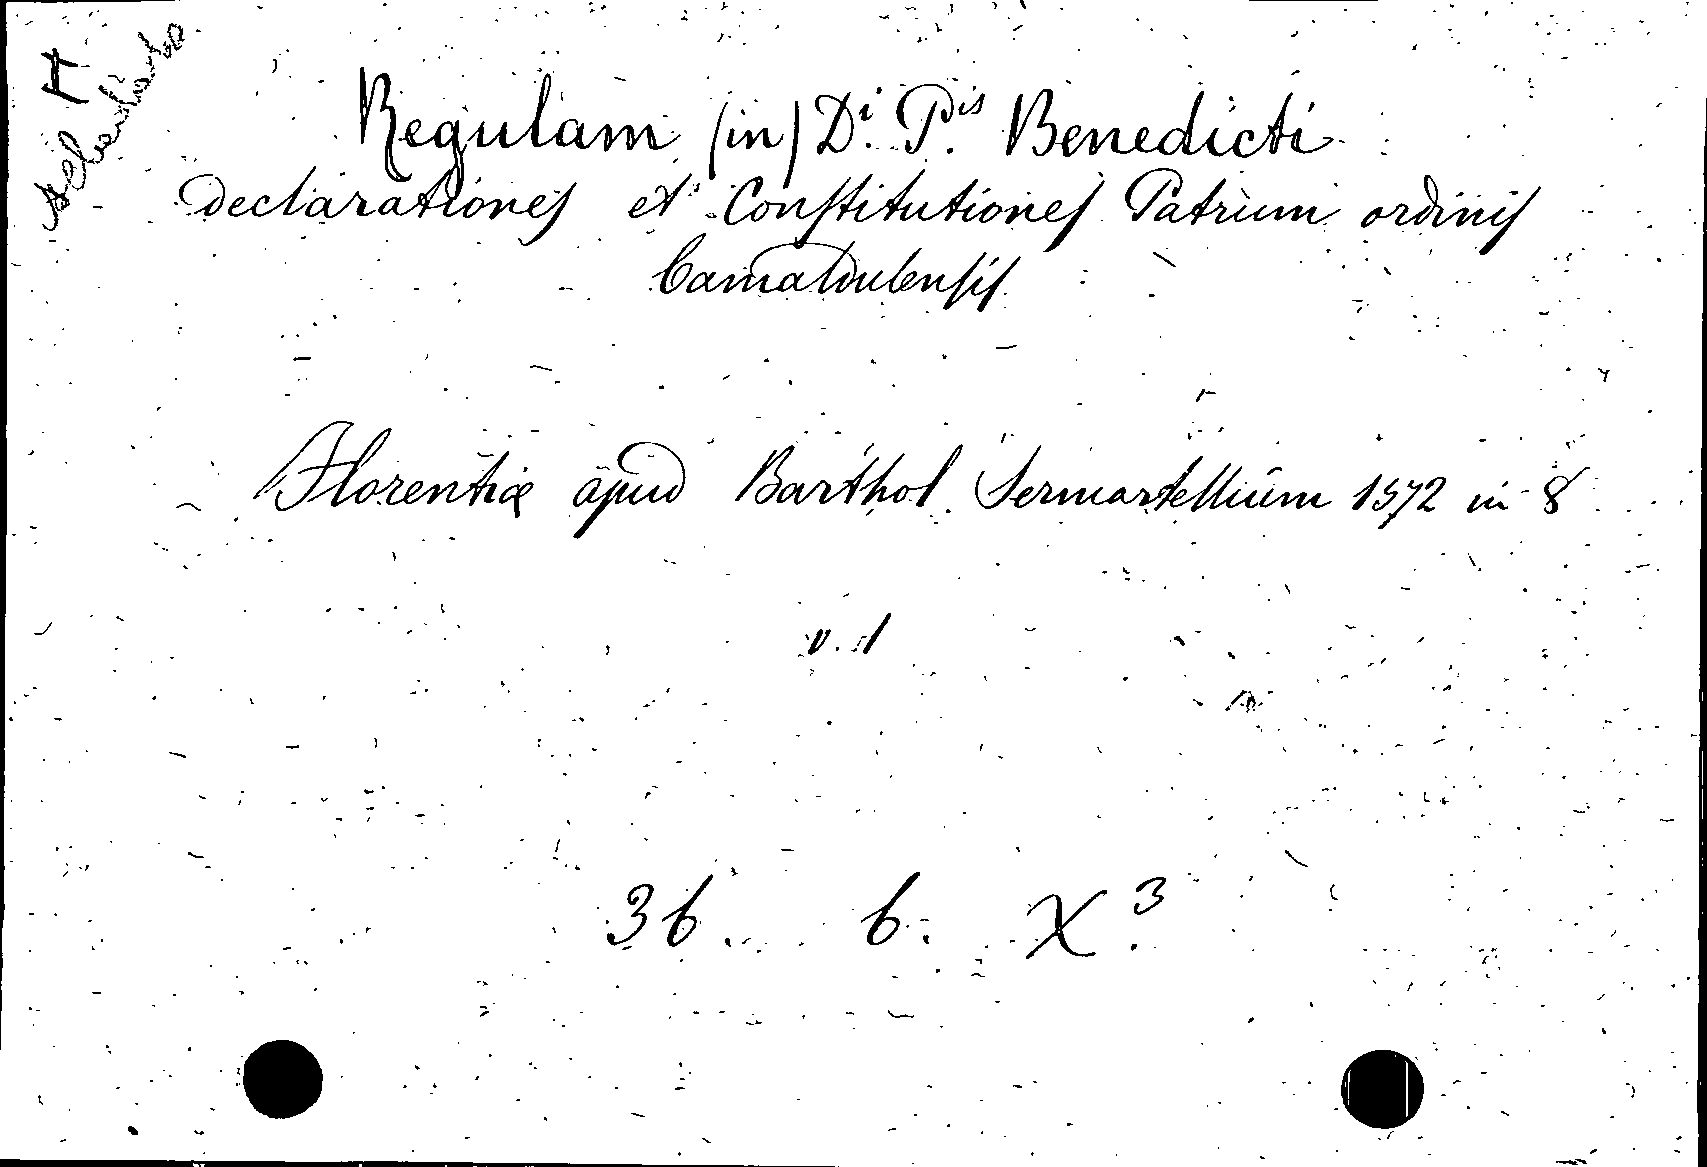 Regulam (in) Di. Pis. Benedicti
Declarationes et Constitutiones Patrum ordinis
Camaldulensis
Florentiæ apud Barthol. Sermartellium 1572 in 8
v. 1
36. 6. X 3.